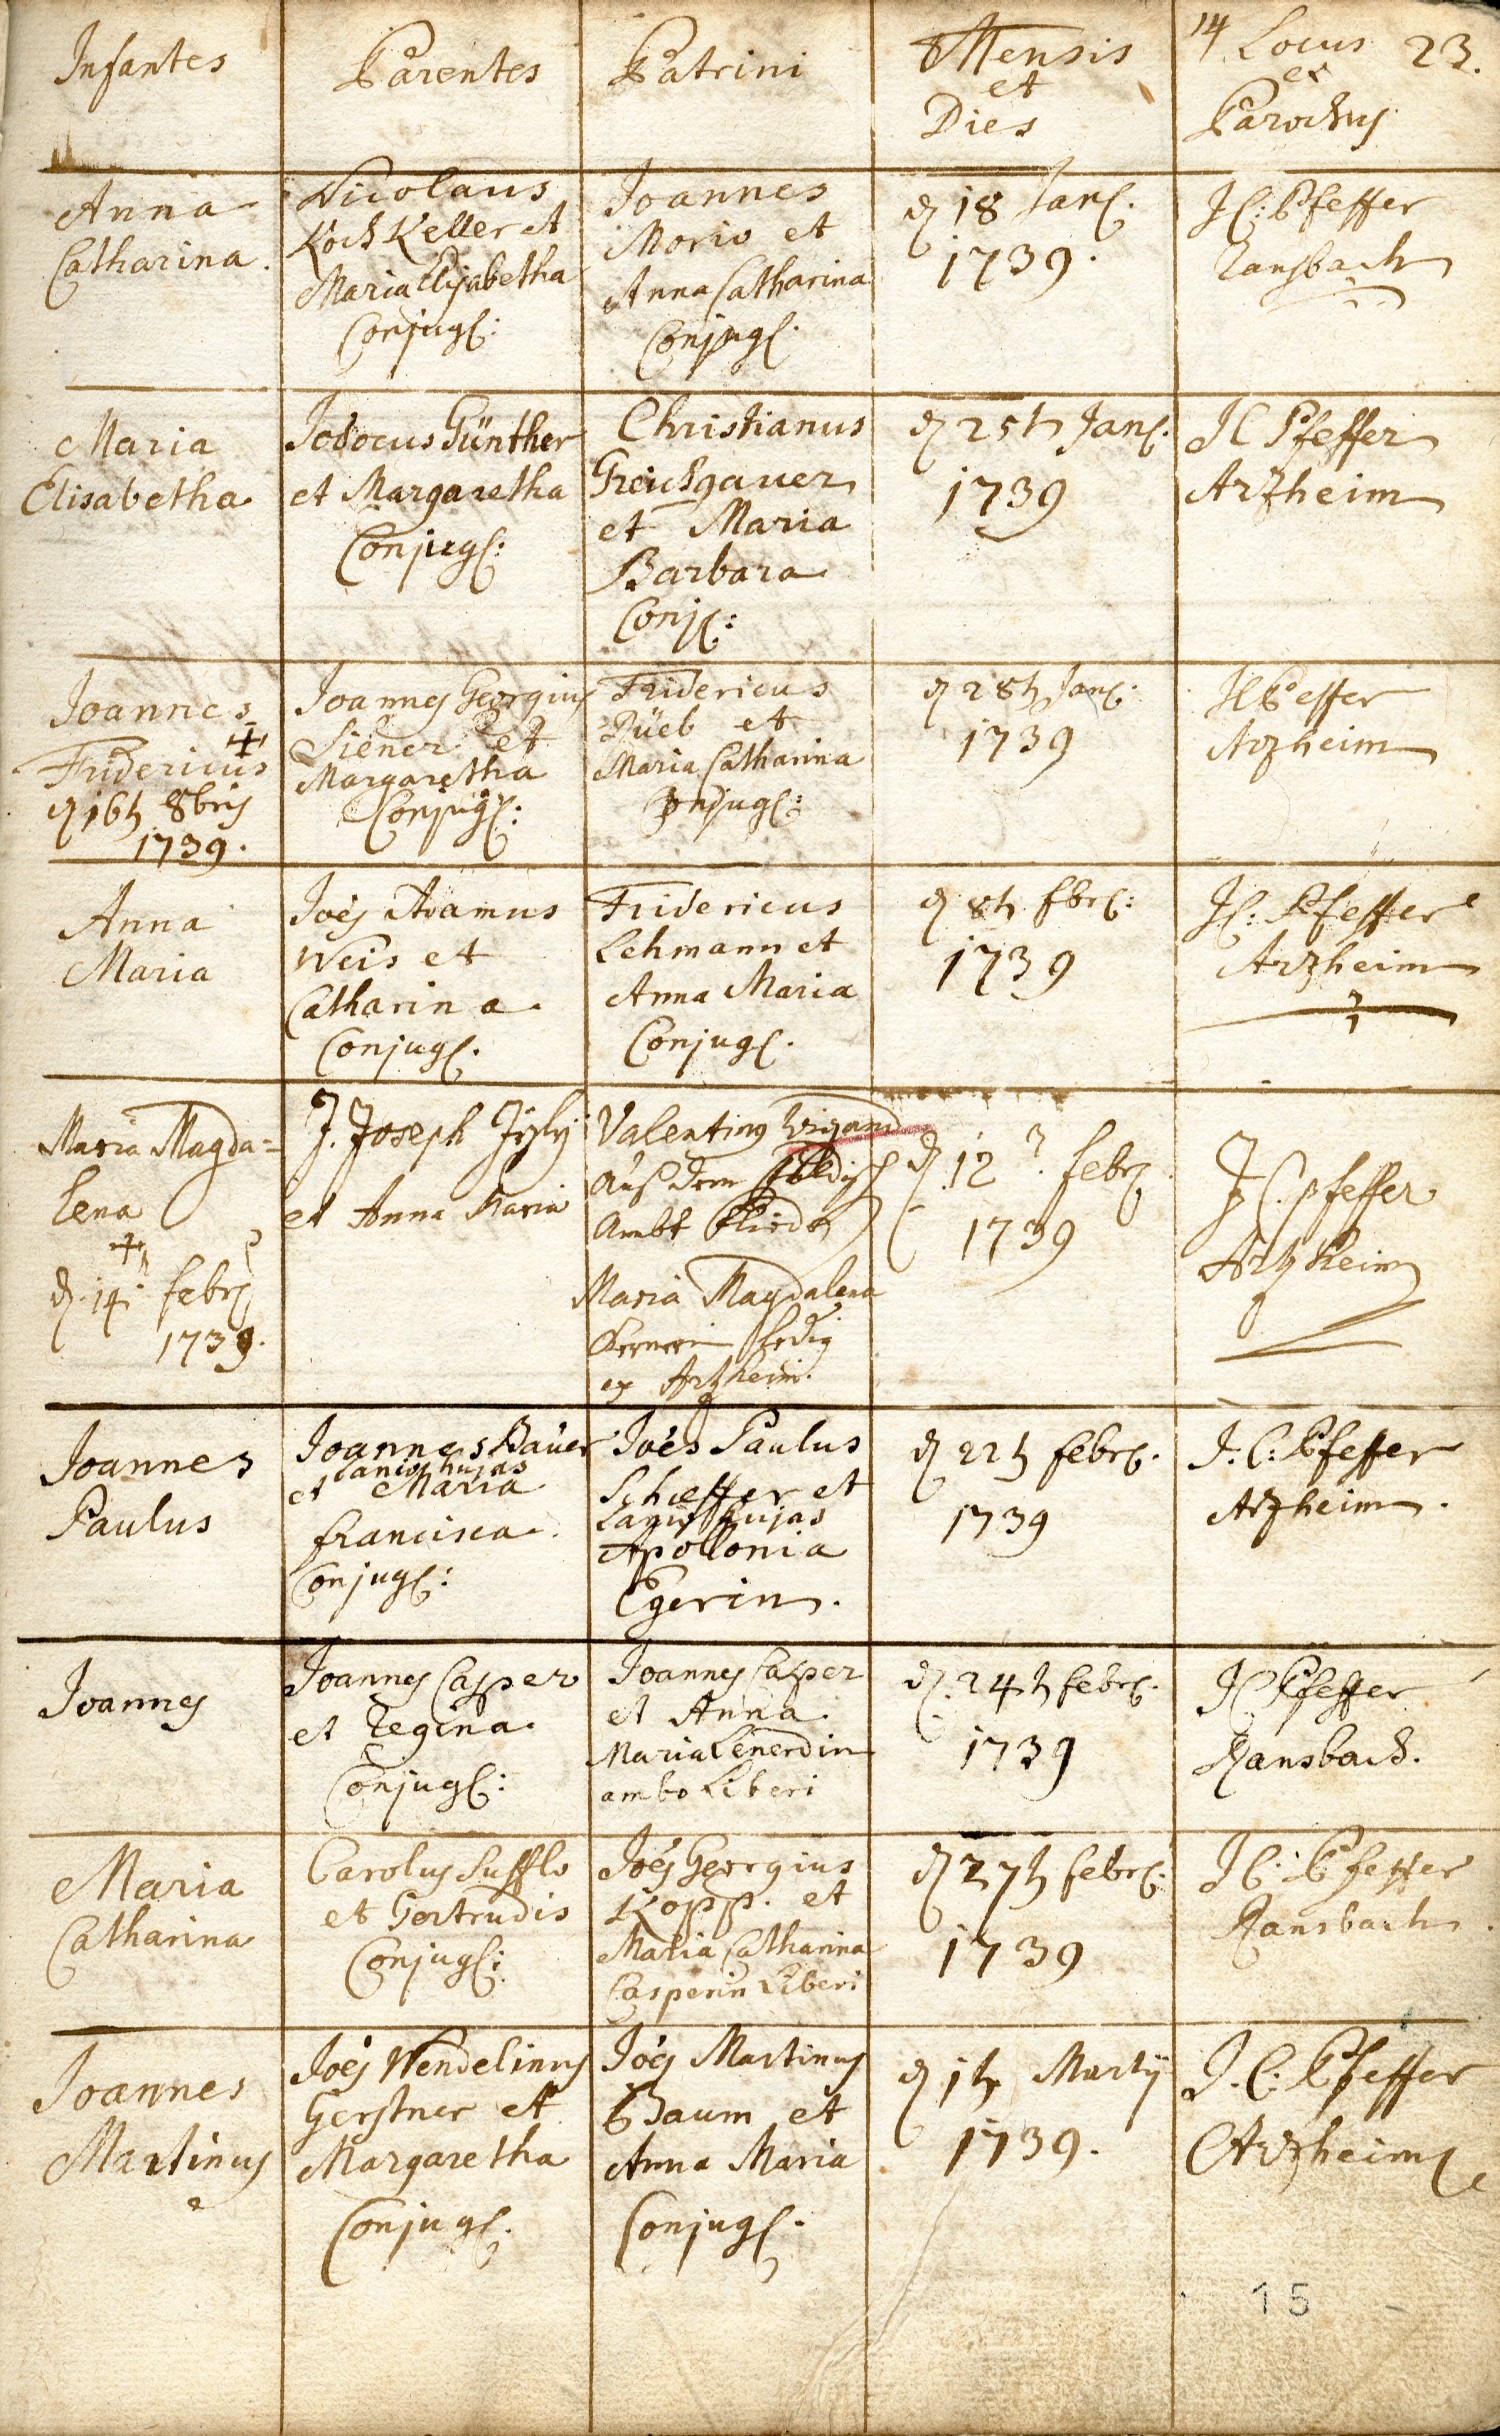 Infantes
Parentes
Patrini
Mensis
et
Dies
14 Locus 23.
et
Parochus
Anna
Catharina.
Nicolaus
Koch Keller et
Maria Elisabetha
Conjug:
Joannes
Morio et
Anna Catharina
Conjug.
d 18 Jan.
1739.
JC: Pfeffer
Ransbach
Maria
Elisabetha
Jodocus Günther
et Margaretha
Conjug:
Christianus
Greichgauer
et Maria
Barbara
Conj:
d 25t Jan.
1739
JC Pfeffer
Arzheim
Joannes
+
Fridericus
d 16t 8bris
1739.
Joannes Georgius
Siener et
Margaretha
Conjug:
Fridericus
Düeb et
Maria Catharina
Conjug:
d 28t Jan:
1739
JC Pfeffer
Arzheim
Anna
Maria
Joes Adamus
Weis et
Catharina.
Conjug.
Fridericus
Lehmann et
Anna Maria
Conjug.
d 8t fbr:
1739
JC: Pfeffer
Arzheim
Maria Magda=
lena
+
d. 14 febr
1739.
J. Joseph
et Anna Maria
Valentinus Wigand
Auß dem
Ambt
Maria Magdalena
ledig
ex Artzheim.
d. 12 febr
1739
J C. pfeffer
Artzheim
Joannes
Paulus
Joannes Bauer
Lanio hujas
et Maria
francisca.
Conjug:
Joes Paulus
Scheffer et
Lanio hujas
Apollonia
Egerin.
d 22t febr.
1739
J. C: Pfeffer
Arzheim.
Joannes
Joannes Casper
et Regina.
Conjug:
Joannes Casper
et Anna.
Maria Lenerdin
ambo Liberi
d. 24t febr.
1739
JC Pfeffer
Ransbach.
Maria
Catharina
Carolus Sufflo
et Gertrudis
Conjug:
Joes Georgius
Kopp. et
Maria Catharina
Casperin Liberi
d 27t febr:
1739
JC: Pfeffer
Ransbach.
Joannes
Martinus
Joes Wendelinus
Gerstner et
Margaretha
Conjug.
Joes Martinus
Baum et
Anna Maria
Conjug.
d 1t Martij
1739.
J. C: Pfeffer
Arzheim
15